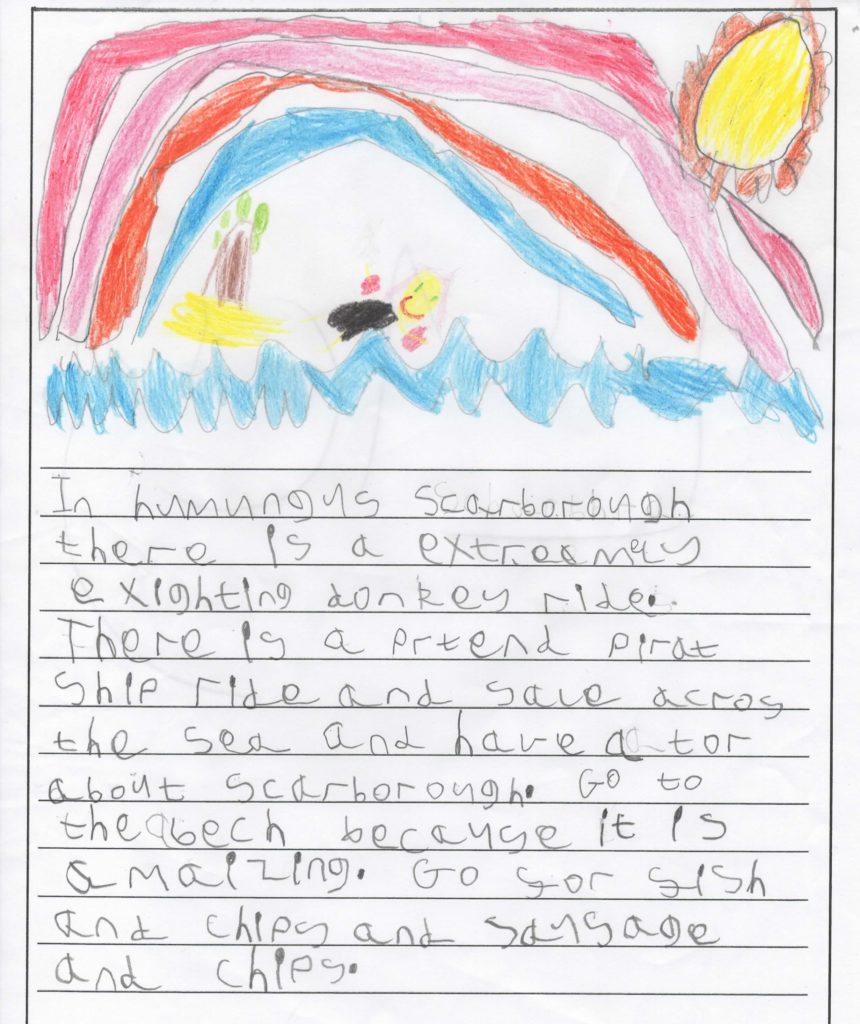 In humungus scarborough
there is a extreamely
exighting donkey ride.
There is a prtend pirat
ship ride and save acros
the sea and have a tor
about scarborough. Go to
the bech because it is
amaizing. Go for fish
and chips and sausage
and chips.